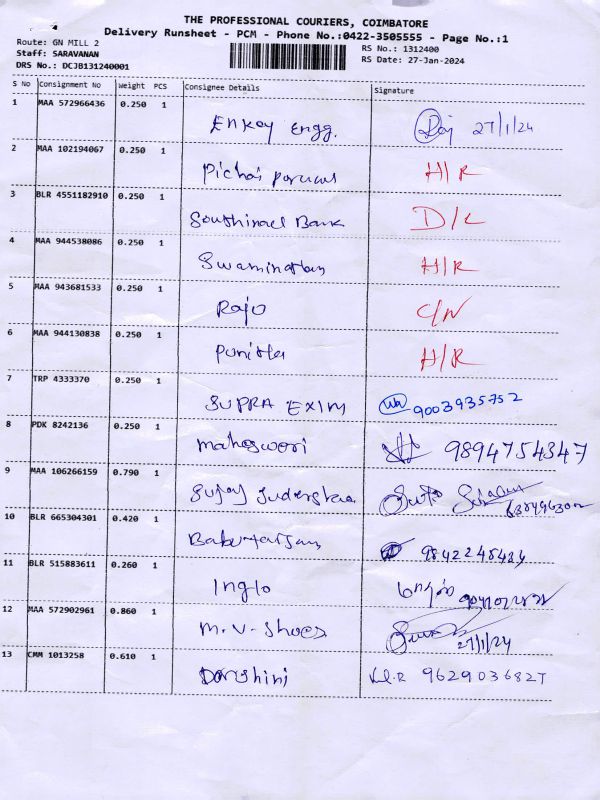 THE PROFESSIONAL COURIERS, COIMBATORE
Delivery Runsheet - PCM - Phone No.:0422-3505555 - Page No.:1
Route: GN MILL 2
RS No.: 1312400
Staff: SARAVANAN
RS Date: 27-Jan-2024
DRS No.: DCJB131240001
S No Consignment No Weight PCS Consignee Details Signature
1 MAA 572966436 0.250 1
Enkay Engg. Raj 27/1/24
2 MAA 102194067 0.250 1
Pichai H/R
3 BLR 4551182910 0.250 1
Bank D/L
4 MAA 944538086 0.250 1
Swaminathan H/R
5 MAA 943681533 0.250 1
Raju C/N
6 MAA 944130838 0.250 1
Punitha H/R
7 TRP 4333370 0.250 1
SUPRA EXIM 9003935752
8 PDK 8242136 0.250 1
maheswari 9894754347
9 MAA 106266159 0.790 1
Sujay
10 BLR 665304301 0.420 1
11 BLR 515883611 0.260 1
Inglo
12 MAA 572902961 0.860 1
M.V. Shoes 27/1/24
13 CMM 1013258 0.610 1
Darshini 9629036827